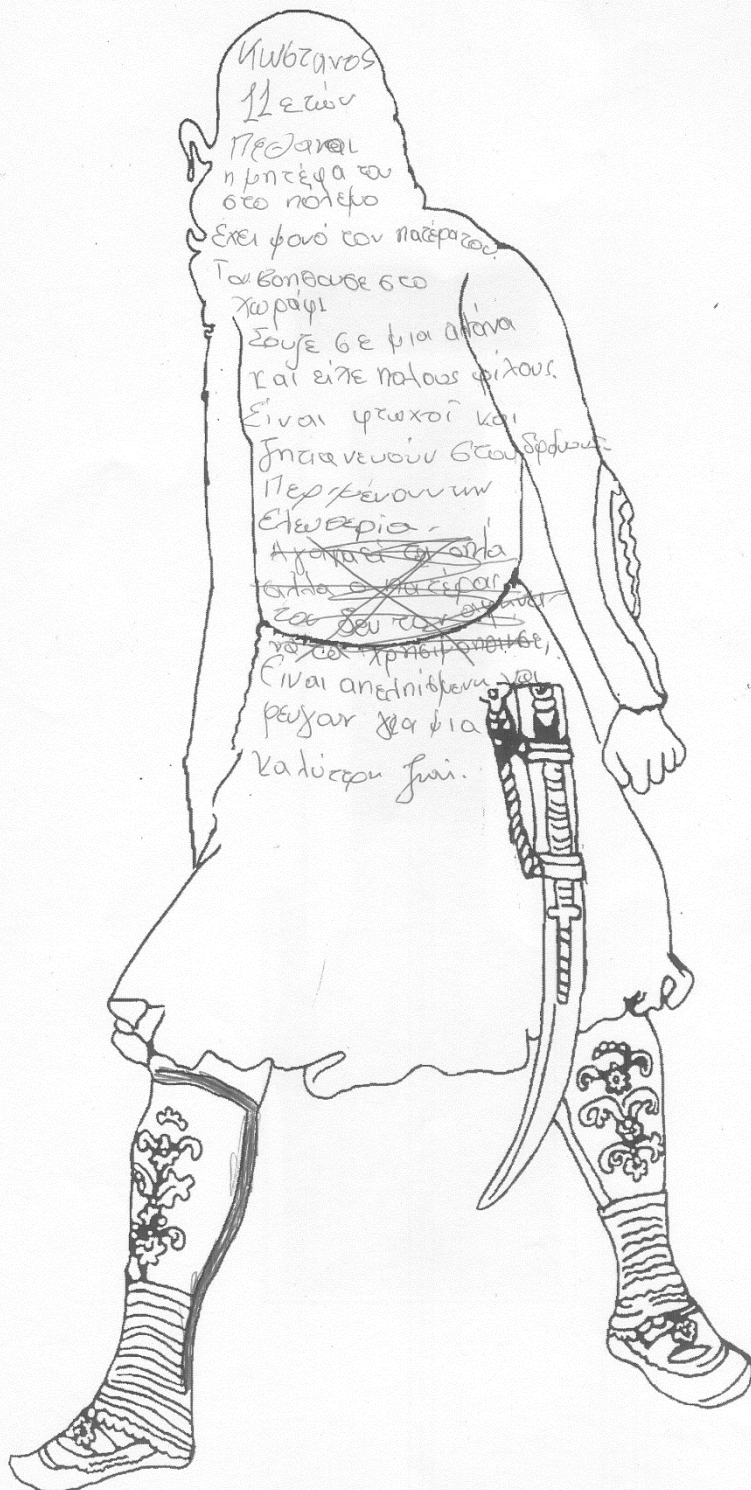 Κωστανος
11 ετών
Πεθαναι
η μητέρα του
στο πολεμο
έχει φονό τον πατέρα του.
Τον βοηθουσε στο
χωράφι
Σουζε σε μια
και είπε πολους φίλους.
Είναι φτωχοί και
ζητιανευούν στους δρόμους.
Περιμένουν την
Ελευσερία.
Αγαπαει τα οπλά
αλλα ο πατέρας
του δεν τον
να τα
Είναι απελπισμενη και
ρευγουν για μια
καλύτερη